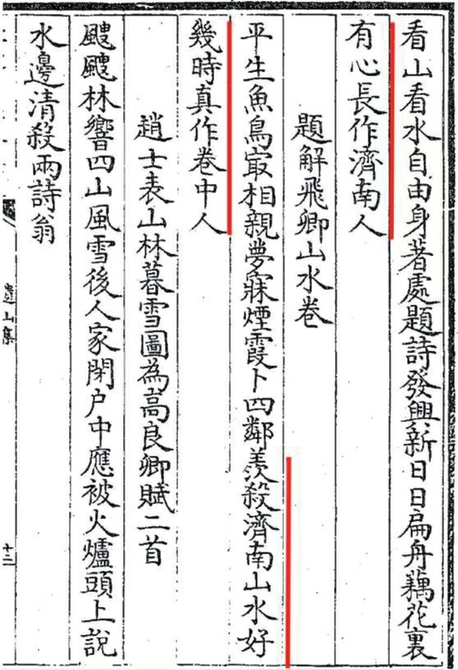 看山看水自由身著處題詩發興新日日扁舟藕花裏
有心長作濟南人
題解飛卿山水卷
平生魚鳥㝡相親夢寐煙霞卜四鄰羨殺濟南山水好
幾時真作卷中人
趙士表山林暮雪圖為高良卿賦二首
颼颼林響四山風雪後人家閉户中應被火爐頭上說
水邊清殺兩詩翁
遺山集
十三